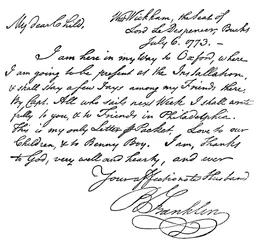 My dear Child, West Wickham, the Seat of
Lord Le Despencer, Bucks
July 6. 1773. —
I am here in my way to Oxford, where
I am going to be present at the Installation,
& shall stay a few Days among my Friends there.
By Capt. All who sails next Week I shall write
fully to you, & to Friends in Philadelphia.
This is my only Letter Pr Packet. Love to our
Children, & to Benny Boy. I am, Thanks
to God, very well and hearty, and ever
Your affectionate Husband
B Franklin